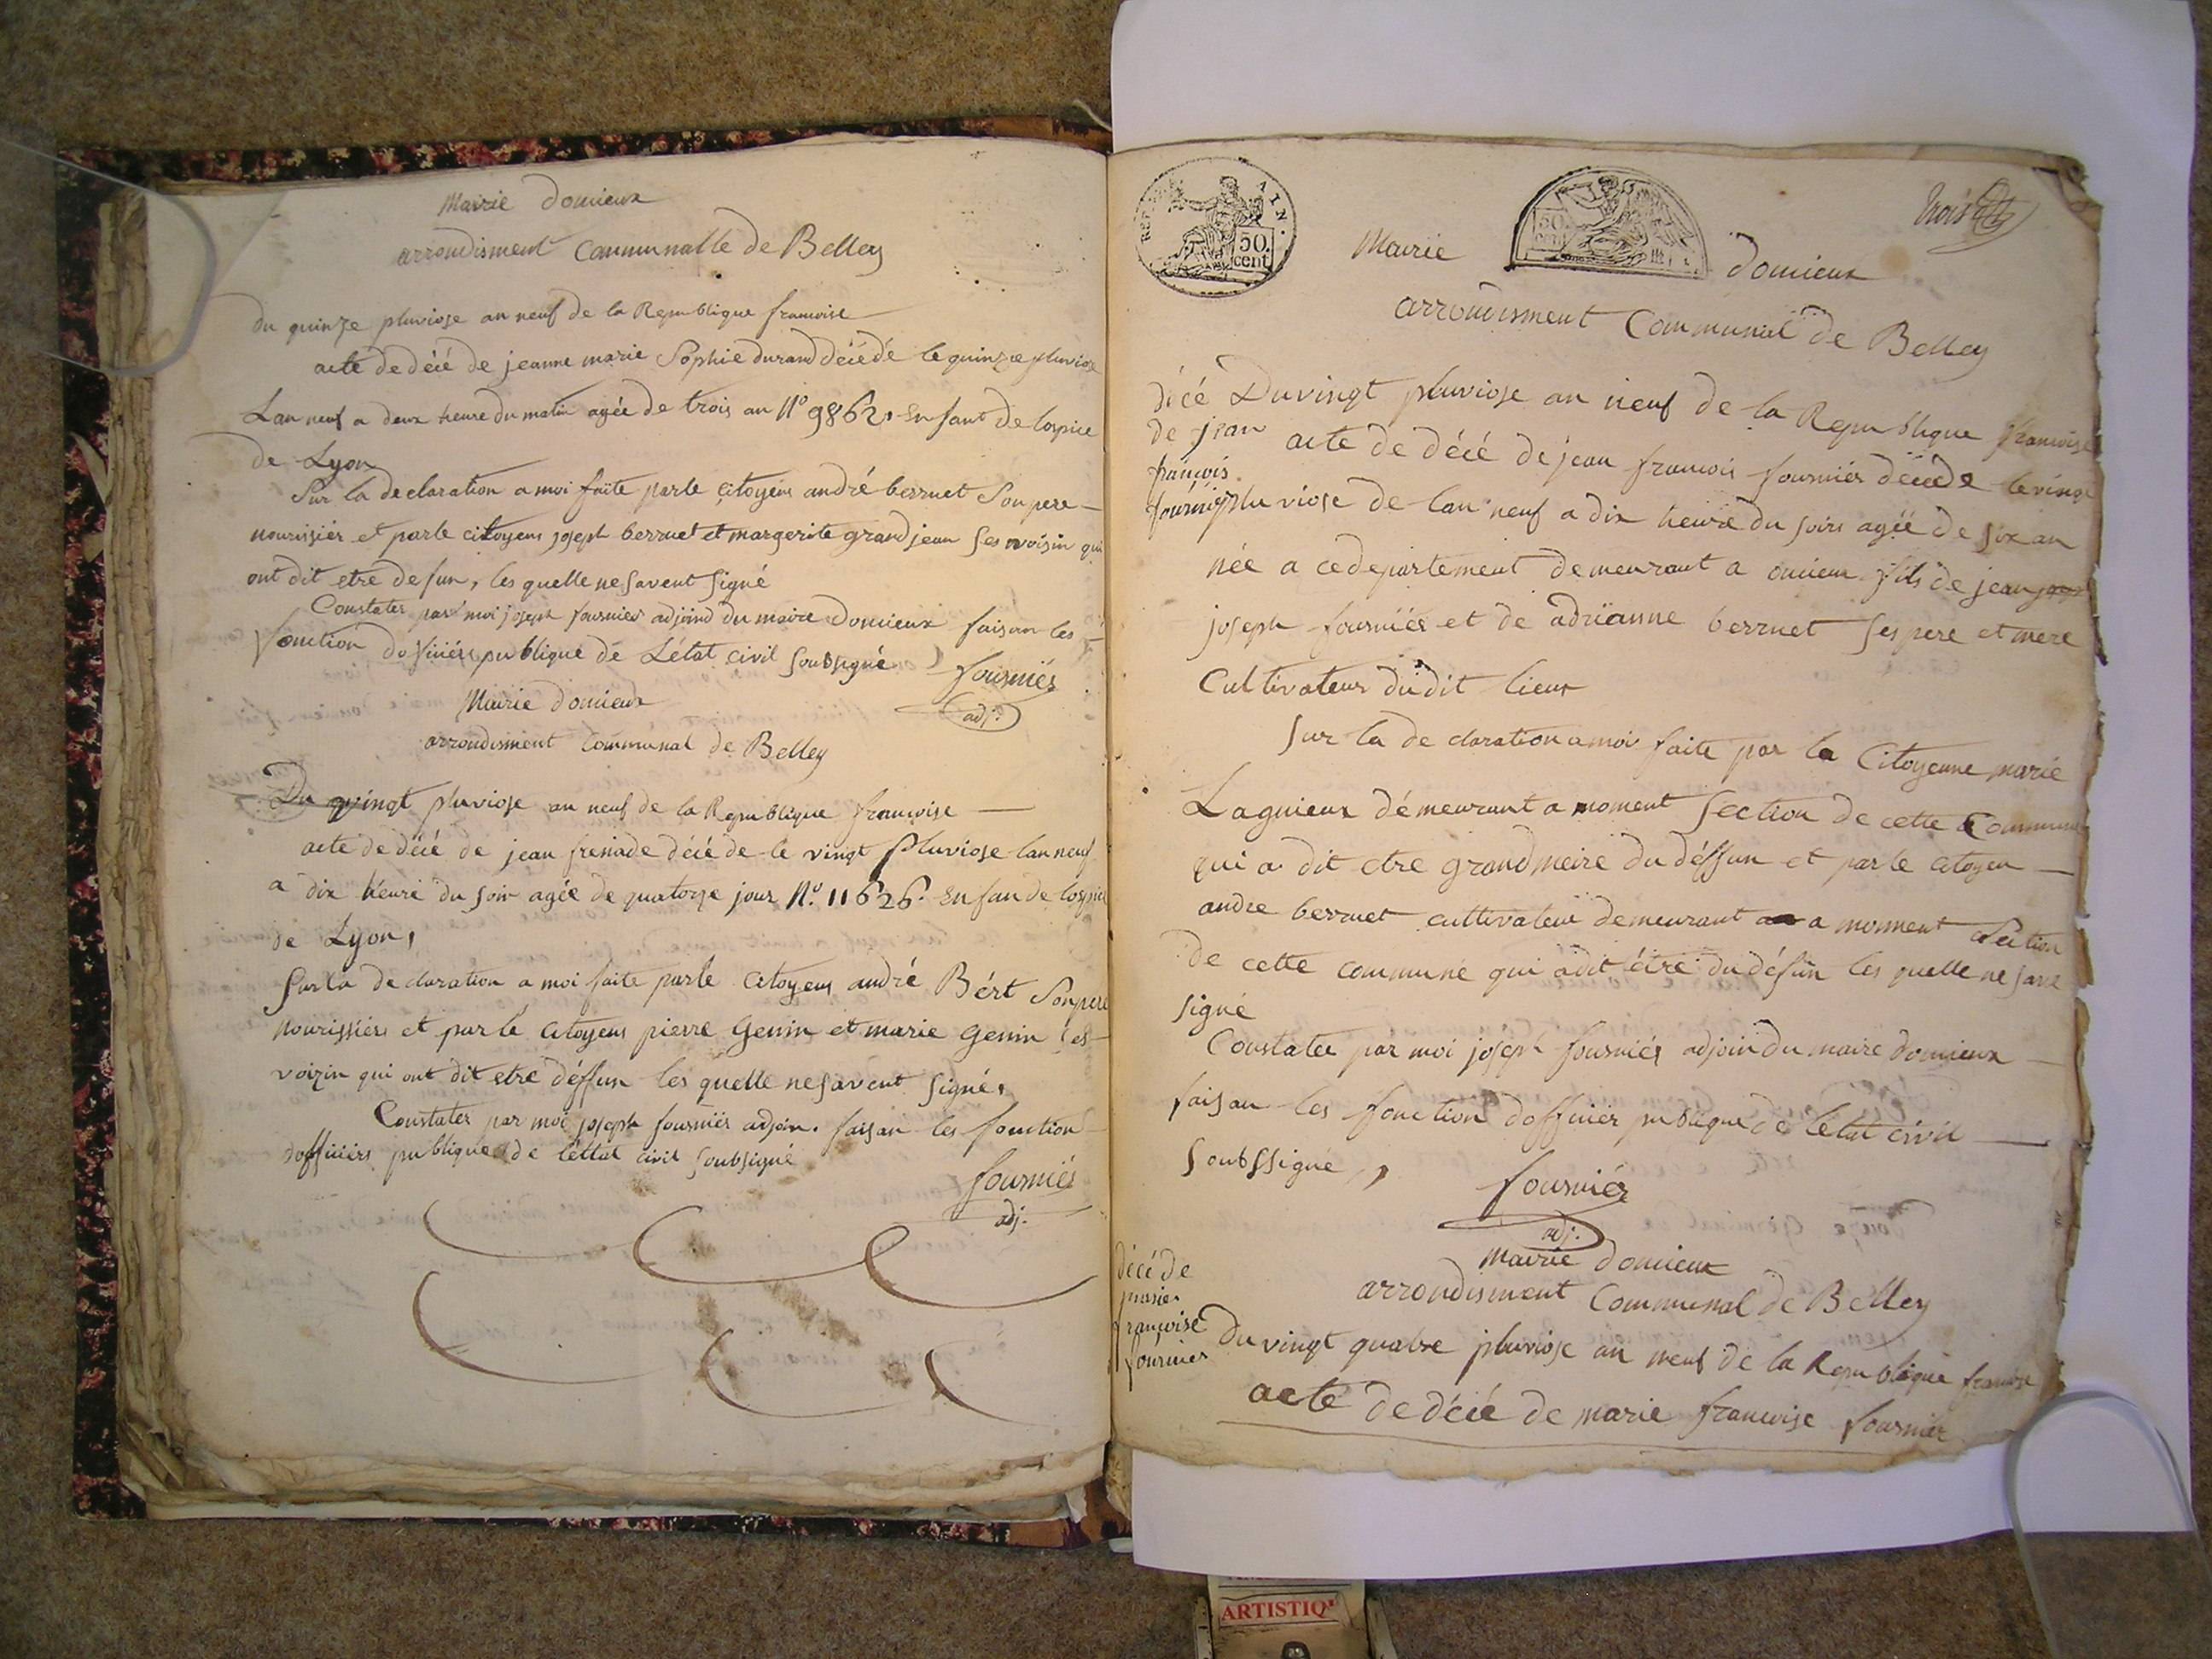 Mairie domieux
arrondisment Communalle de Belley
du quinze pluviose an neuf de la Republique francoise
acte de décé de jeanne marie Sophie durand décédé le quinze pluviose
Lan neuf a deux heure du matin agée de trois an N° 9862. Enfant de lospice
de Lyon
Sur la declaration a moi faite parle citoyens andré berruet Son pere
nourissiér et parle citoyens joseph berruet et margerite grandjean Ses voisin qui
ont dit etre defun, les quelle ne savent signé
Constater par moi joseph fournier adjoind du maire domieux faisan les
fonction dofficiérs publique de L'état civil soubsigné fourniér
adj.
Mairie domieux
arrondisment Communal de Belley
Du vingt pluviose an neuf de la Republique francoise
acte de décé de jean decédé le vingt pluviose lan neuf
a dix heure du soir agée de quatorze jour N° 11626. Enfan de lospice
de Lyon,
Sur la declaration a moi faite parle citoyens andré Bért Son pere
nourissiérs et parle citoyens pierre Genin et marie Genin les
voizin qui ont dit etre déffun les quelle ne savent signés
Constater par moi joseph fourniér adjoin. faisan les fonction
dofficiérs publique de l'éttat civil soubsigné
fourniér
adj.
trois
REP. AIN.
50.
cent
50.
cent
Mairie domieux
arrondisment Communal de Belley
décé
de jean
francois
fourniér
Du vingt pluviose an neuf de la Republique francoise
acte de décé de jean francois fourniér décédé le vingt
pluviose de lan neuf a dix heure du soirs agéé de six an
née a ce departement demeurant a omieux fils de jean
joseph fourniér et de adrianne berruet ses pere et mere
Cultivateur dudit lieux
Sur la declaration a moi faite par la Citoyenne marie
Lagnieux démeurant a moment Section de cette Commune
qui a dit etre grand meire du déffun et parle citoyen
andre berruet cultivateur demeurant a moment Section
de cette commune qui a dit étre du défun les quelle ne save
signé
Constater par moi joseph fourniér adjoin du maire domieux
faisan les fonction dofficiér publique de létat civil
Soubssigné,
fourniér
adj.
Mairie domieux
arrondisment Communal de Belley
décé de
marie
francoise
fournier
du vingt quatre pluviose an neuf de la Republique francoise
acte de décé de marie francoise fournier
ARTISTIQ'